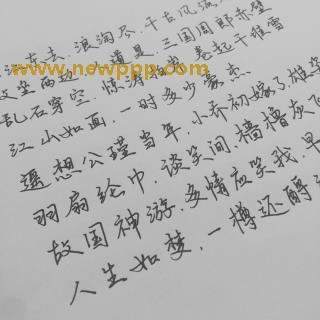 东去、浪淘尽、千古风流
故垒西边 道是、三国周郎赤壁
www.newppp.com
乱石穿空、惊涛拍岸 卷起千堆雪
江山如画,一时多少豪杰.
遥想公瑾当年,小乔初嫁了,雄姿
羽扇纶巾,谈笑间,樯橹灰飞
故国神游,多情应笑我,早
人生如梦,一樽还酹